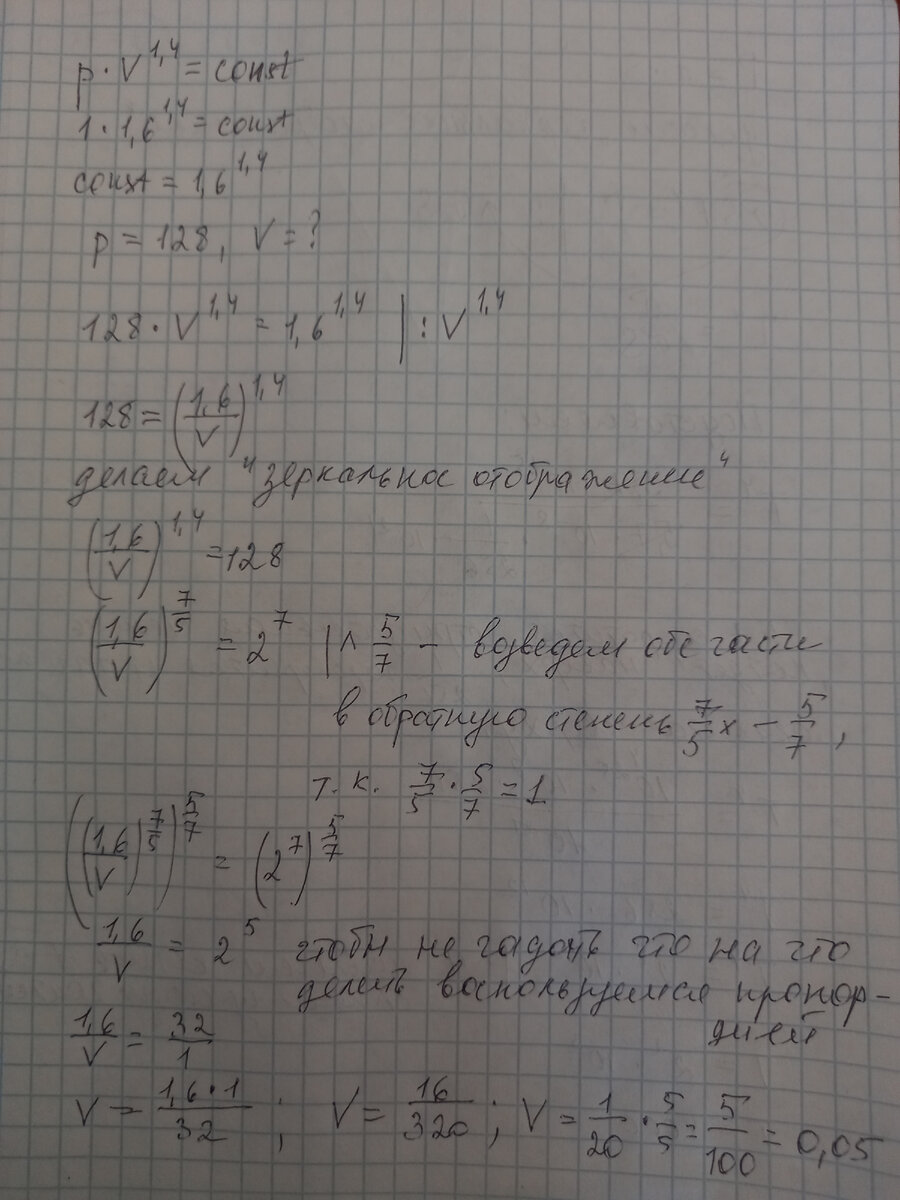 p · V^1,4 = const
1 · 1,6^1,4 = const
const = 1,6^1,4
p = 128, V = ?
128 · V^1,4 = 1,6^1,4 | : V^1,4
128 = (1,6/V)^1,4
делаем "зеркальное отображение"
(1,6/V)^1,4 = 128
(1,6/V)^7/5 = 2^7 | ^ 5/7 — возведем обе части
в обратную степень 7/5 x — 5/7,
т.к. 7/5 · 5/7 = 1
((1,6/V)^7/5)^5/7 = (2^7)^5/7
1,6/V = 2^5 чтобы не гадать что на что
делить воспользуемся пропор-
цией
1,6/V = 32/1
V = 1,6·1/32 ; V = 16/320 ; V = 1/20 · 5/5 = 5/100 = 0,05